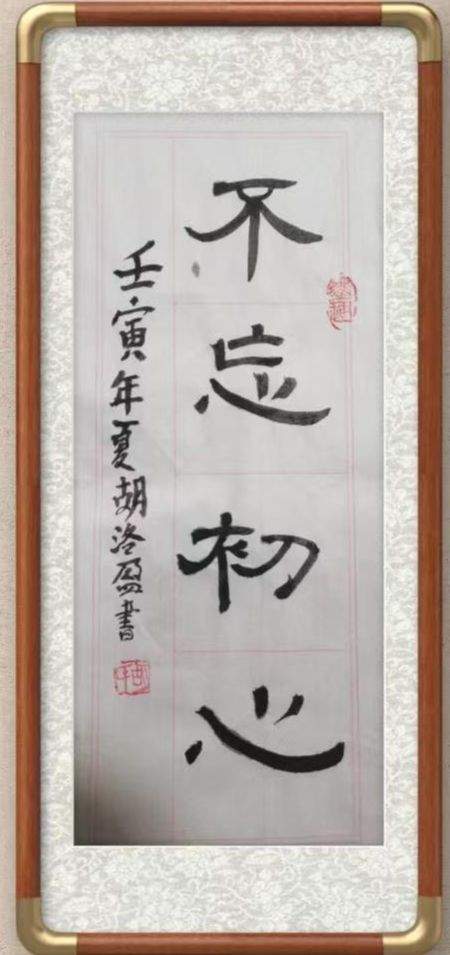 不忘初心
壬寅年夏胡洛盈書